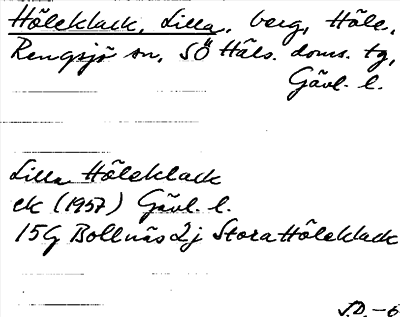 Höleklack, Lilla, berg, Häls.,
Rengsjö sn, SÖ Häls. doms. tg,
Gävl. l.
Lilla Höleklack
ek (1957) Gävl. l.
15G Bollnäs 2j Stora Höleklack